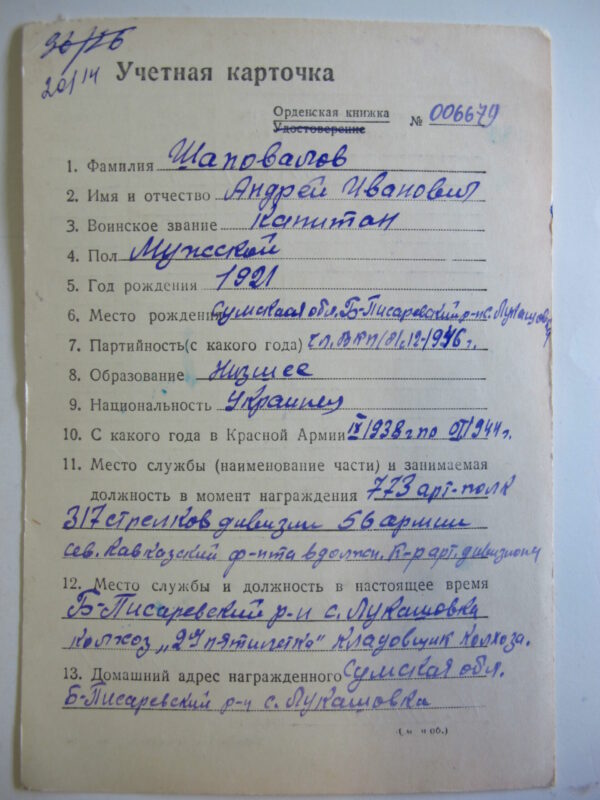 20/14
Учетная карточка
Орденская книжка
Удостоверение
№ 006679
1. Фамилия Шаповалов
2. Имя и отчество Андрей Иванович
3. Воинское звание Капитан
4. Пол Мужской
5. Год рождения 1921
6. Место рождения Сумская обл. Б-Писаревский р-н с. Лукашовка
7. Партийность (с какого года) чл. ВКП/б/ 12-1946 г.
8. Образование Низшее
9. Национальность Украинец
10. С какого года в Красной Армии IX 1938 г по 1944 г.
11. Место службы (наименование части) и занимаемая
должность в момент награждения 773 арт-полк
317 стрелков дивизии 56 армии
сев. Кавказский ф-нта в должн. К-р арт. дивизиона
12. Место службы и должность в настоящее время
Б-Писаревский р-н с. Лукашовка
колхоз „2я пятилетка" Кладовщик колхоза.
13. Домашний адрес награжденного Сумская обл.
Б-Писаревский р-н с. Лукашовка